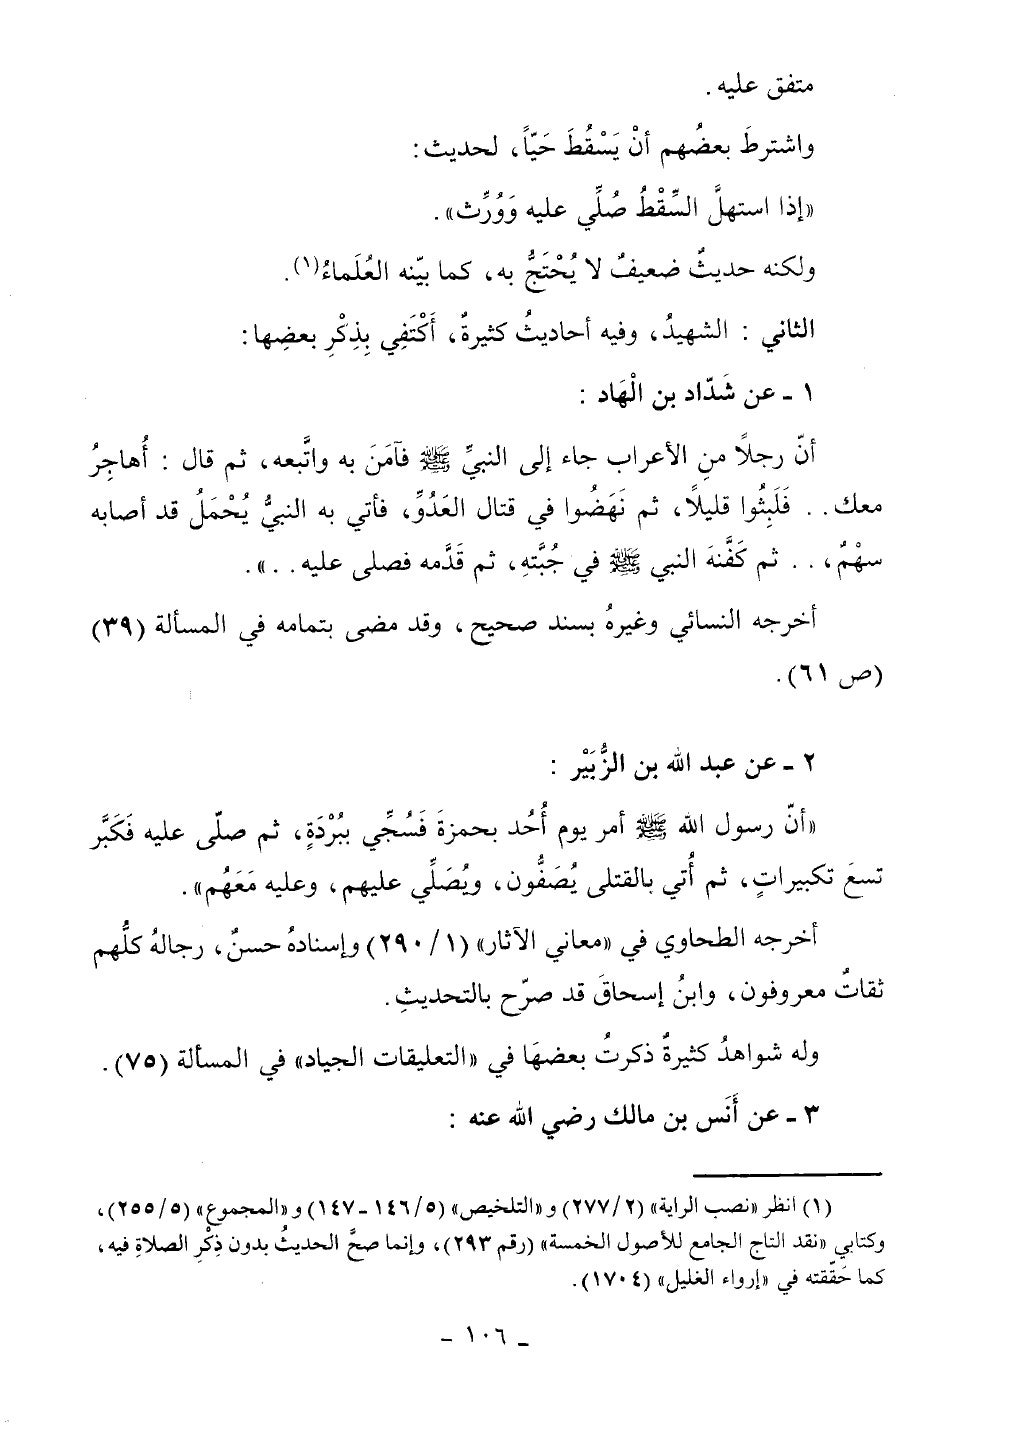 متفق عليه .
واشترطَ بعضُهم أنْ يَسْقُطَ حَيّاً، لحديث:
«إذا استهلَّ السِّقْطُ صُلِّي عليه وَوُرِّث».
ولكنه حديثٌ ضعيفٌ لا يُحْتَجُّ به، كما بيّنه العُلَماءُ(١).
الثاني : الشهيدُ، وفيه أحاديثُ كثيرةٌ، أَكْتَفِي بِذِكْرِ بعضِها:
١ ـ عن شَدّاد بن الْهَاد :
أنّ رجلاً منِ الأعراب جاء إلى النبيِّ ﷺ فآمَنَ به واتَّبعه، ثم قال : أُهاجِرُ
معك . . فَلَبِثُوا قليلاً، ثم نَهَضُوا في قتال العَدُوِّ، فأتي به النبيُّ يُحْمَلُ قد أصابه
سهْمٌ، . . ثم كَفَّنهَ النبي ﷺ في جُبَّتهِ، ثم قَدَّمه فصلى عليه . . ».
أخرجه النسائي وغيرهُ بسند صحيح، وقد مضى بتمامه في المسألة (٣٩)
(ص ٦١).
٢ ـ عن عبد الله بن الزُّبَيْر :
«أنّ رسول الله ﷺ أمر يوم أُحُد بحمزةَ فَسُجِّي ببُرْدَةٍ، ثم صلّى عليه فَكَبَّر
تسعَ تكبيراتٍ، ثم أُتي بالقتلى يُصَفُّون، ويُصَلِّي عليهم، وعليه مَعَهُم».
أخرجه الطحاوي في «معاني الآثار» (١/ ٢٩٠) وإسنادهُ حسنٌ، رجالهُ كلُّهم
ثقاتٌ معروفون، وابنُ إسحاقَ قد صرّح بالتحديثِ.
وله شواهدُ كثيرةٌ ذكرتُ بعضهَا في «التعليقات الجياد» في المسألة (٧٥).
٣ ـ عن أَنَس بن مالك رضي الله عنه :
(١) انظر «نصب الراية» (٢/ ٢٧٧) و «التلخيص» (٥/ ١٤٦ ـ ١٤٧) و «المجموع» (٥/ ٢٥٥)،
وكتابي «نقد التاج الجامع للأصول الخمسة» (رقم ٢٩٣)، وإنما صحَّ الحديثُ بدون ذِكْرِ الصلاةِ فيه،
كما حَقّقته في «إرواء الغليل» (١٧٠٤).
ـ ١٠٦ ـ